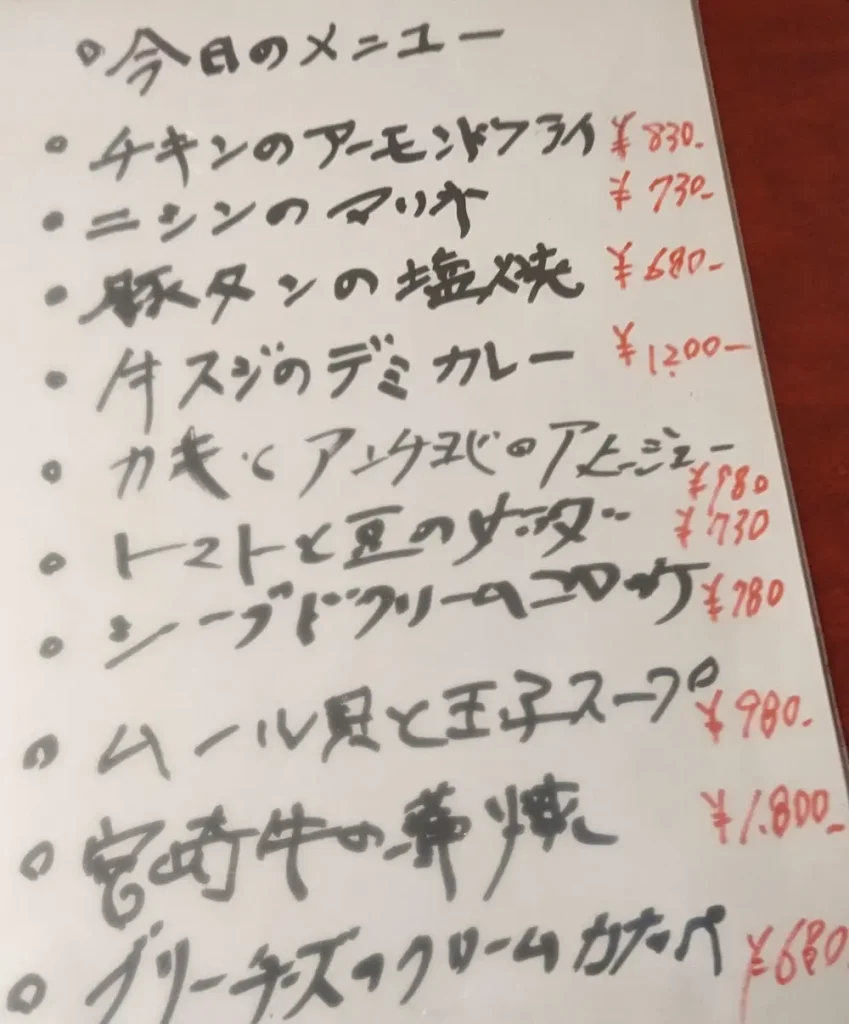 今日のメニュー
チキンのアーモンドフライ ¥830-
ニシンのマリネ ¥730-
豚タンの塩焼 ¥680-
牛スジのデミカレー ¥1,200-
カキとアンチョビのアヒージョー ¥980
トトマトと豆のサラダー ¥730
シーフードクリームコロッケ ¥780
ムール貝と玉子スープ ¥980-
宮崎牛の 焼 ¥1,800-
ブリーチーズのクリームカナッペ ¥680-